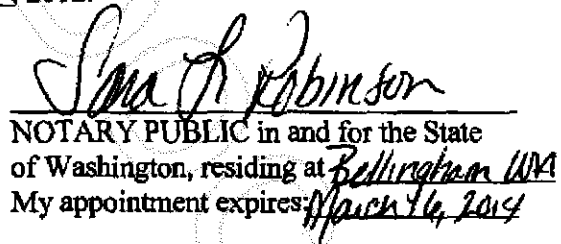 2012.
Sara L Robinson
NOTARY PUBLIC in and for the State
of Washington, residing at Bellingham WA
My appointment expires: March 16, 2014